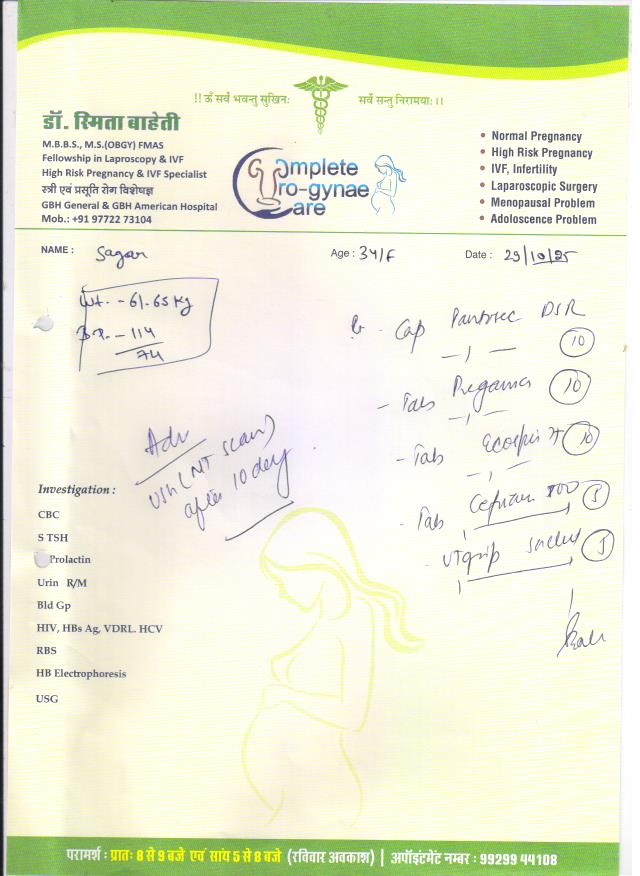 !! ॐ सर्वे भवन्तु सुखिनः सर्वे सन्तु निरामयाः ।।
डॉ. स्मिता बाहेती
M.B.B.S., M.S.(OBGY) FMAS
Fellowship in Laproscopy & IVF
High Risk Pregnancy & IVF Specialist
स्त्री एवं प्रसूति रोग विशेषज्ञ
GBH General & GBH American Hospital
Mob.: +91 97722 73104
Complete
Uro-gynae
Care
• Normal Pregnancy
• High Risk Pregnancy
• IVF, Infertility
• Laparoscopic Surgery
• Menopausal Problem
• Adoloscence Problem
NAME : Sagar Age : 34/F Date : 29/10/25
Wt. - 61.65 kg
B.P. - 114
74
Cap Pantosec DSR
10
- Tab 10
- Tab 10
- Tab 5
5
Adv
USG (NT scan)
after 10 day
Investigation :
CBC
S TSH
Prolactin
Urin R/M
Bld Gp
HIV, HBs Ag, VDRL. HCV
RBS
HB Electrophoresis
USG
परामर्श : प्रातः 8 से 9 बजे एवं सांय 5 से 8 बजे (रविवार अवकाश) | अपॉइंटमेंट नम्बर : 99299 44108